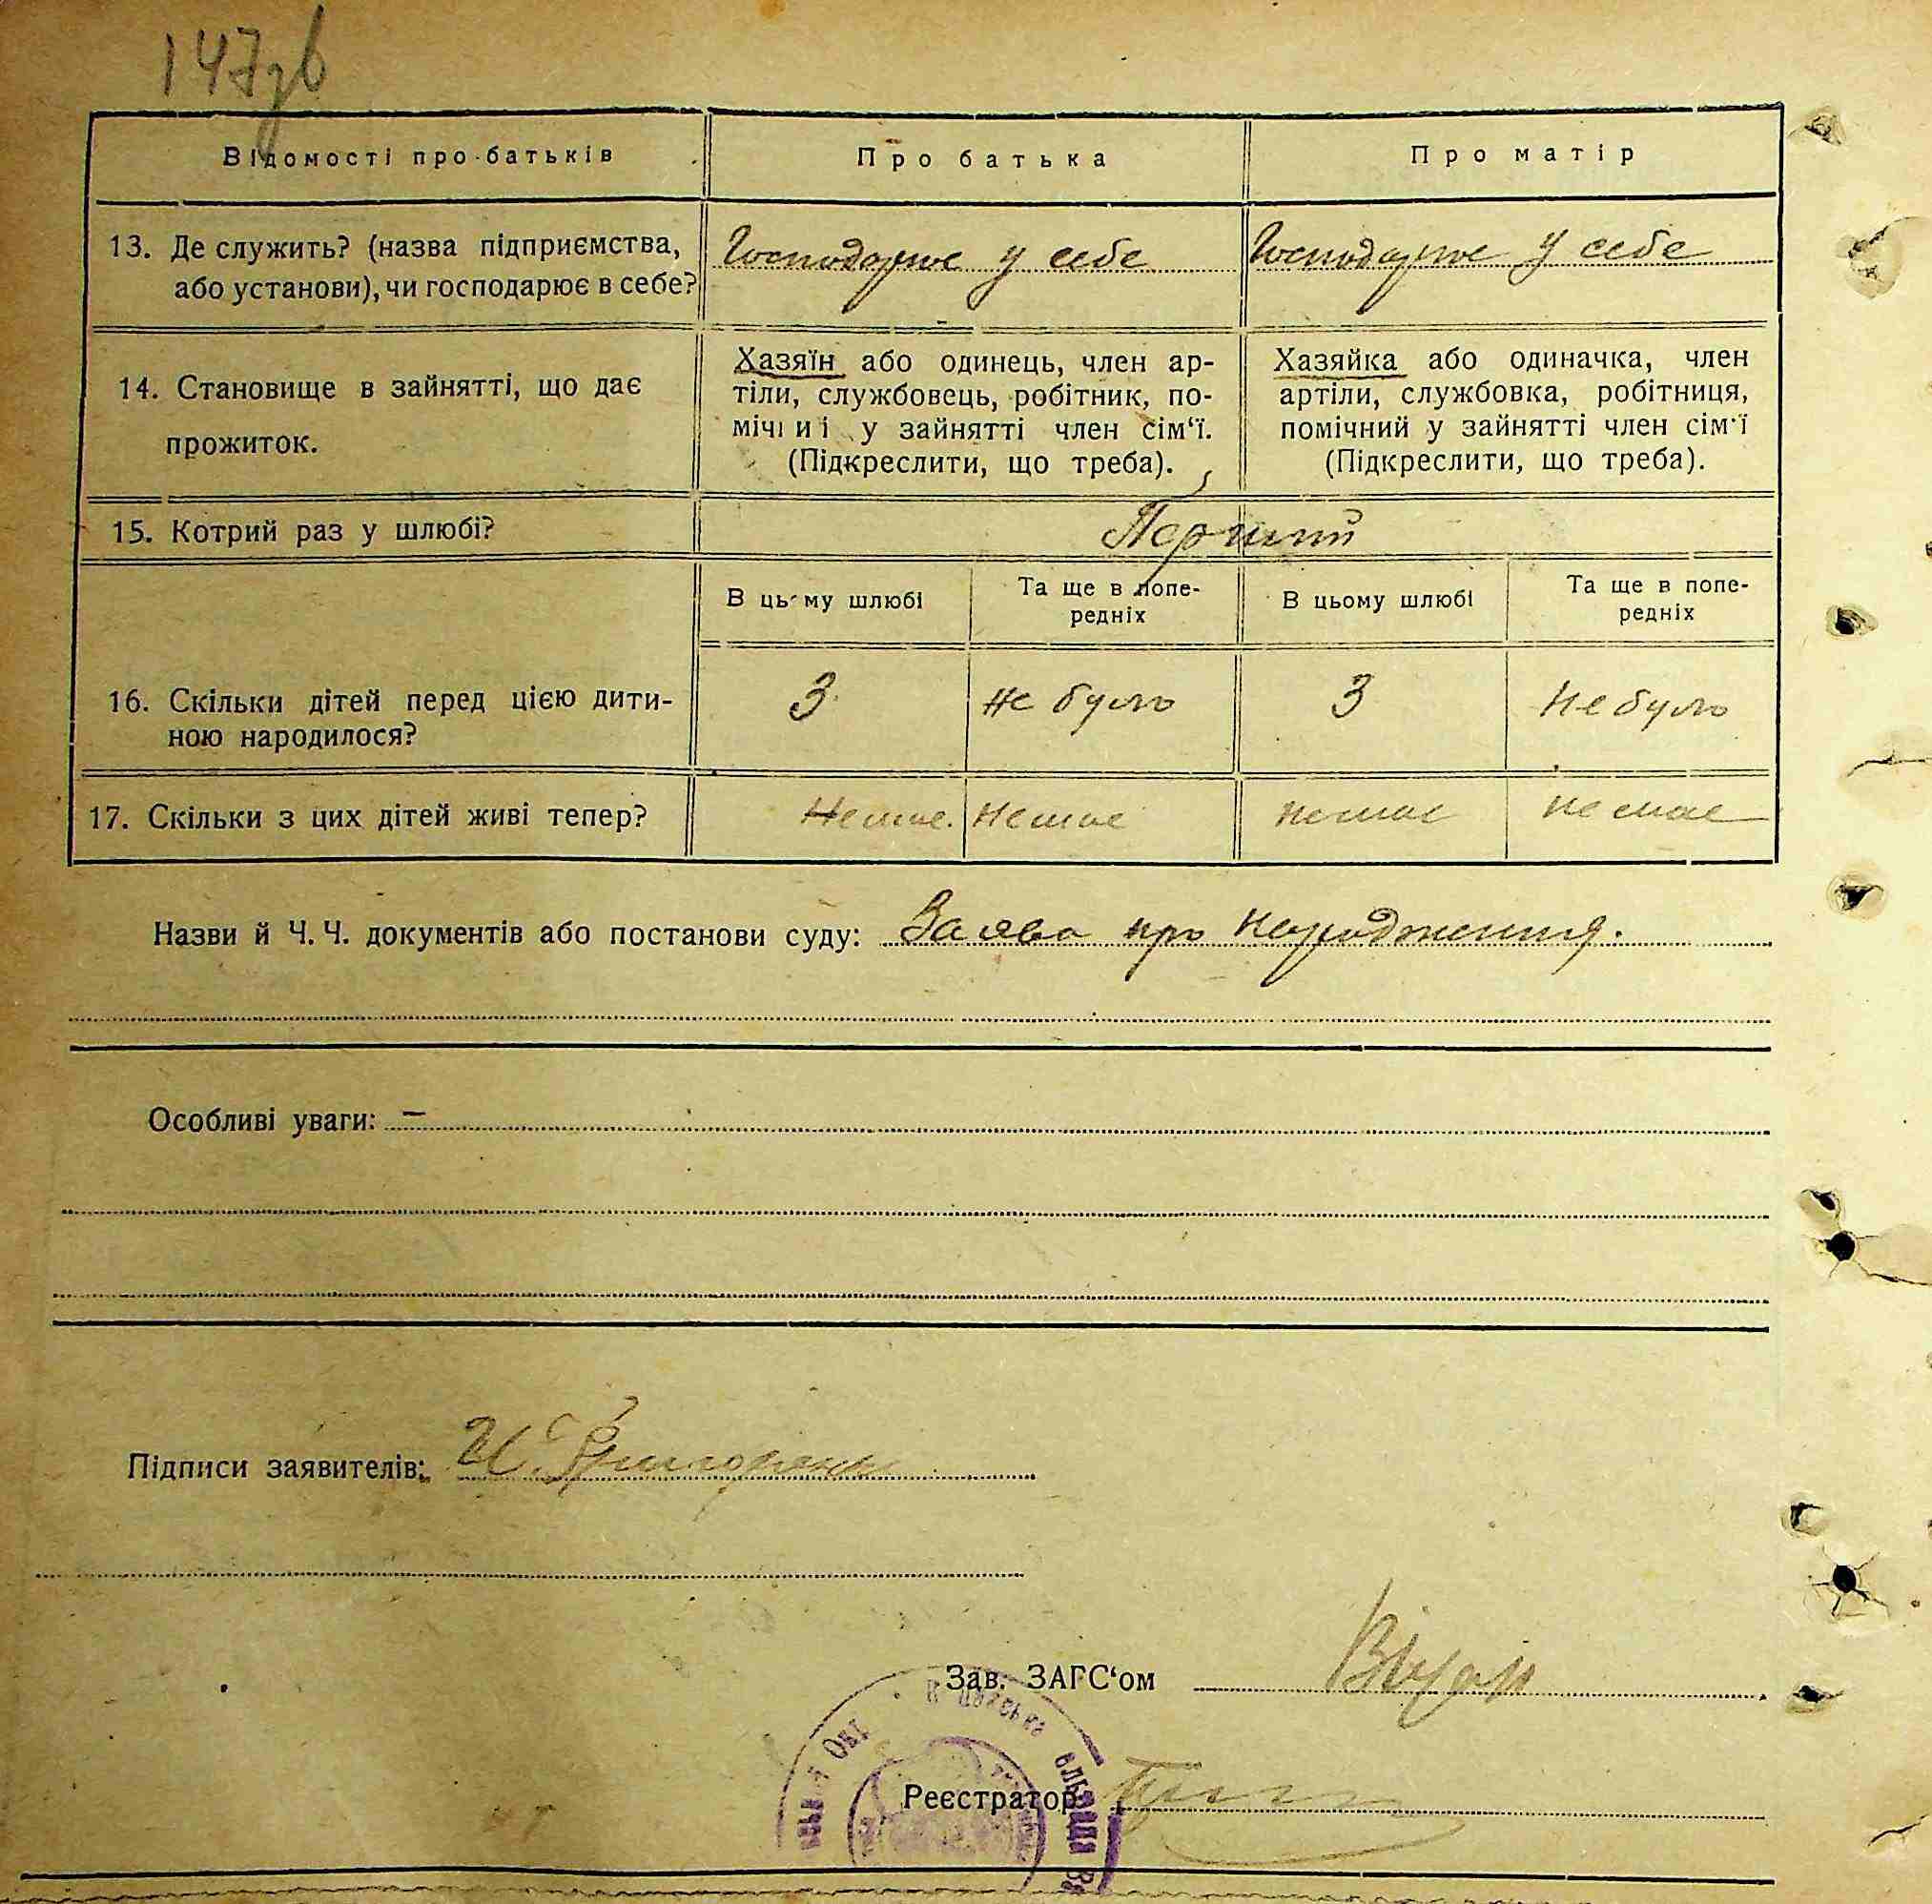 147зв
Відомості про батьків
Про батька
Про матір
13. Де служить? (назва підприємства,
або установи), чи господарює в себе?
Господарює у себе
Господарює у себе
14. Становище в зайнятті, що дає
прожиток.
Хазяїн або одинець, член ар-
тіли, службовець, робітник, по-
мічний у зайнятті член сім‘ї.
(Підкреслити, що треба).
Хазяйка або одиначка, член
артіли, службовка, робітниця,
помічний у зайнятті член сім‘ї
(Підкреслити, що треба).
15. Котрий раз у шлюбі?
Перший
В цьому шлюбі
Та ще в попе-
редніх
В цьому шлюбі
Та ще в попе-
редніх
16. Скільки дітей перед цією дити-
ною народилося?
3
не було
3
не було
17. Скільки з цих дітей живі тепер?
Немає.
Немає
немає
немає
Назви й Ч. Ч. документів або постанови суду: Заява про народження.
Особливі уваги: —
Підписи заявителів:
Зав. ЗАГС‘ом
Реєстратор